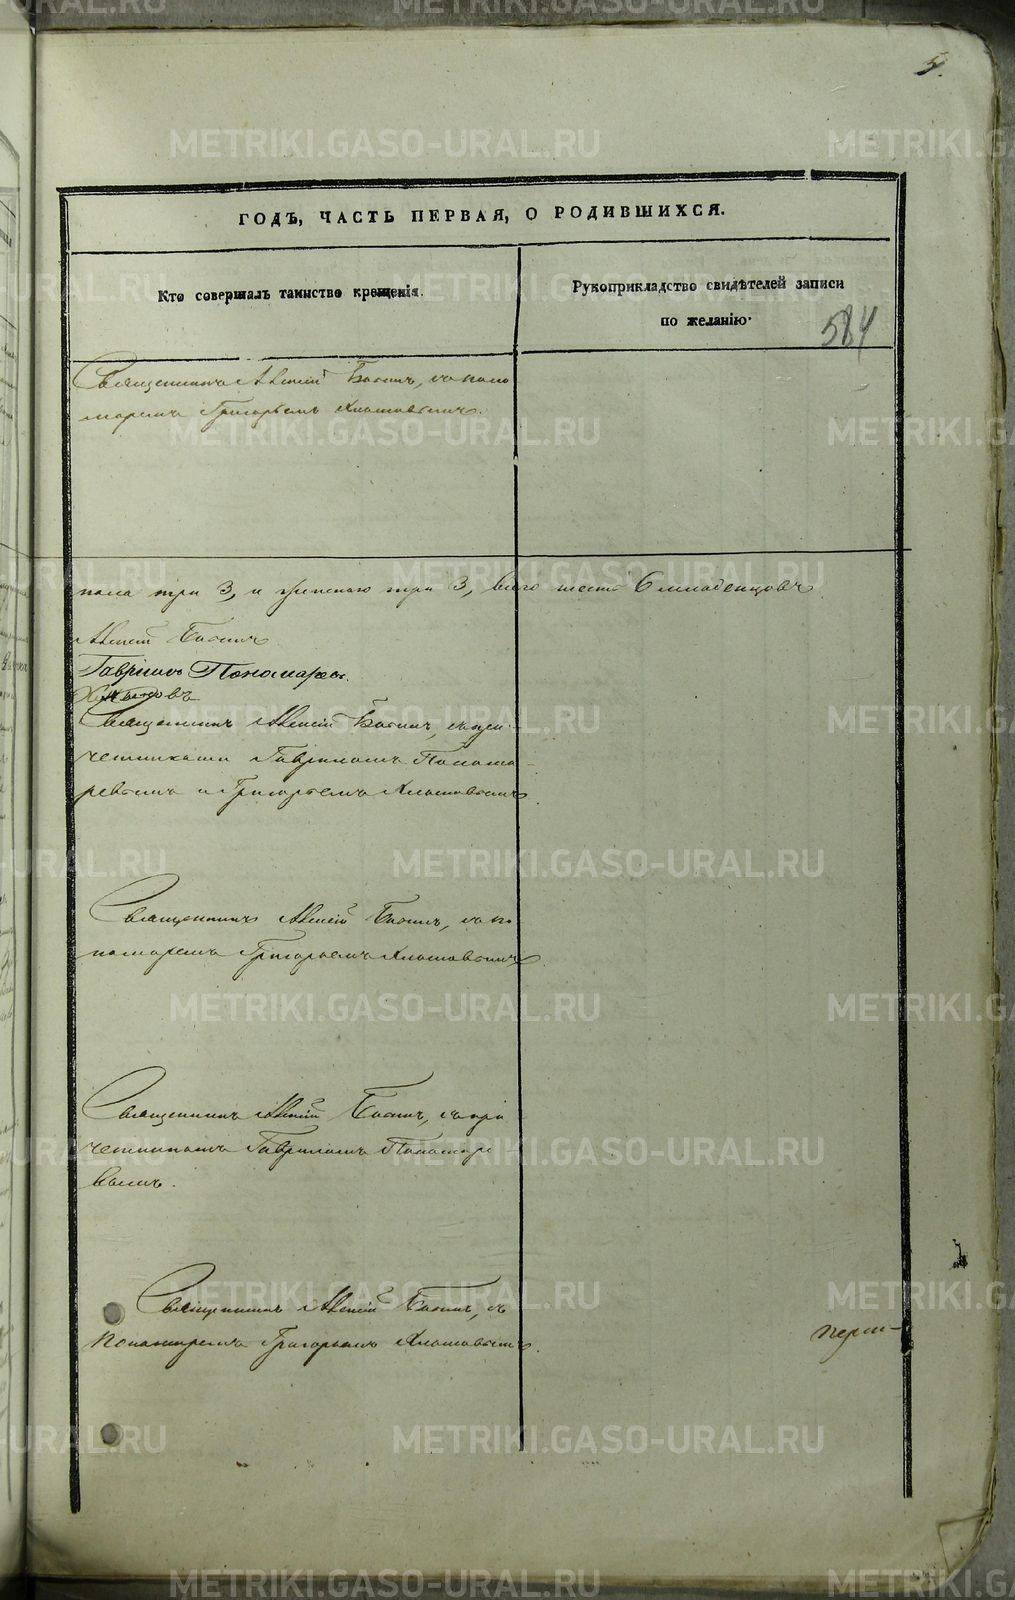 5.
ГОДЪ, ЧАСТЬ ПЕРВАЯ, О РОДИВШИХСЯ.
Кто совершалъ таинство крещенія.
Рукоприкладство свидѣтелей записи
по желанію.
584
Священникъ Алексій, съ поно
маремъ Григорьемъ
пола три 3, и женскаго три 3, всего шесть 6 младенцовъ.
Алексій
Гавріилъ Пономаревъ.
Священникъ Алексій, съ при
четниками Гавриломъ Понома-
ревымъ и Григорьемъ
Священникъ Алексій, съ по
номаремъ Григорьемъ
Священникъ Алексій, съ при
четникомъ Гавриломъ Пономаре
вымъ.
Священникъ Алексій, съ
Пономаремъ Григорьемъ
METRIKI.GASO-URAL.RU